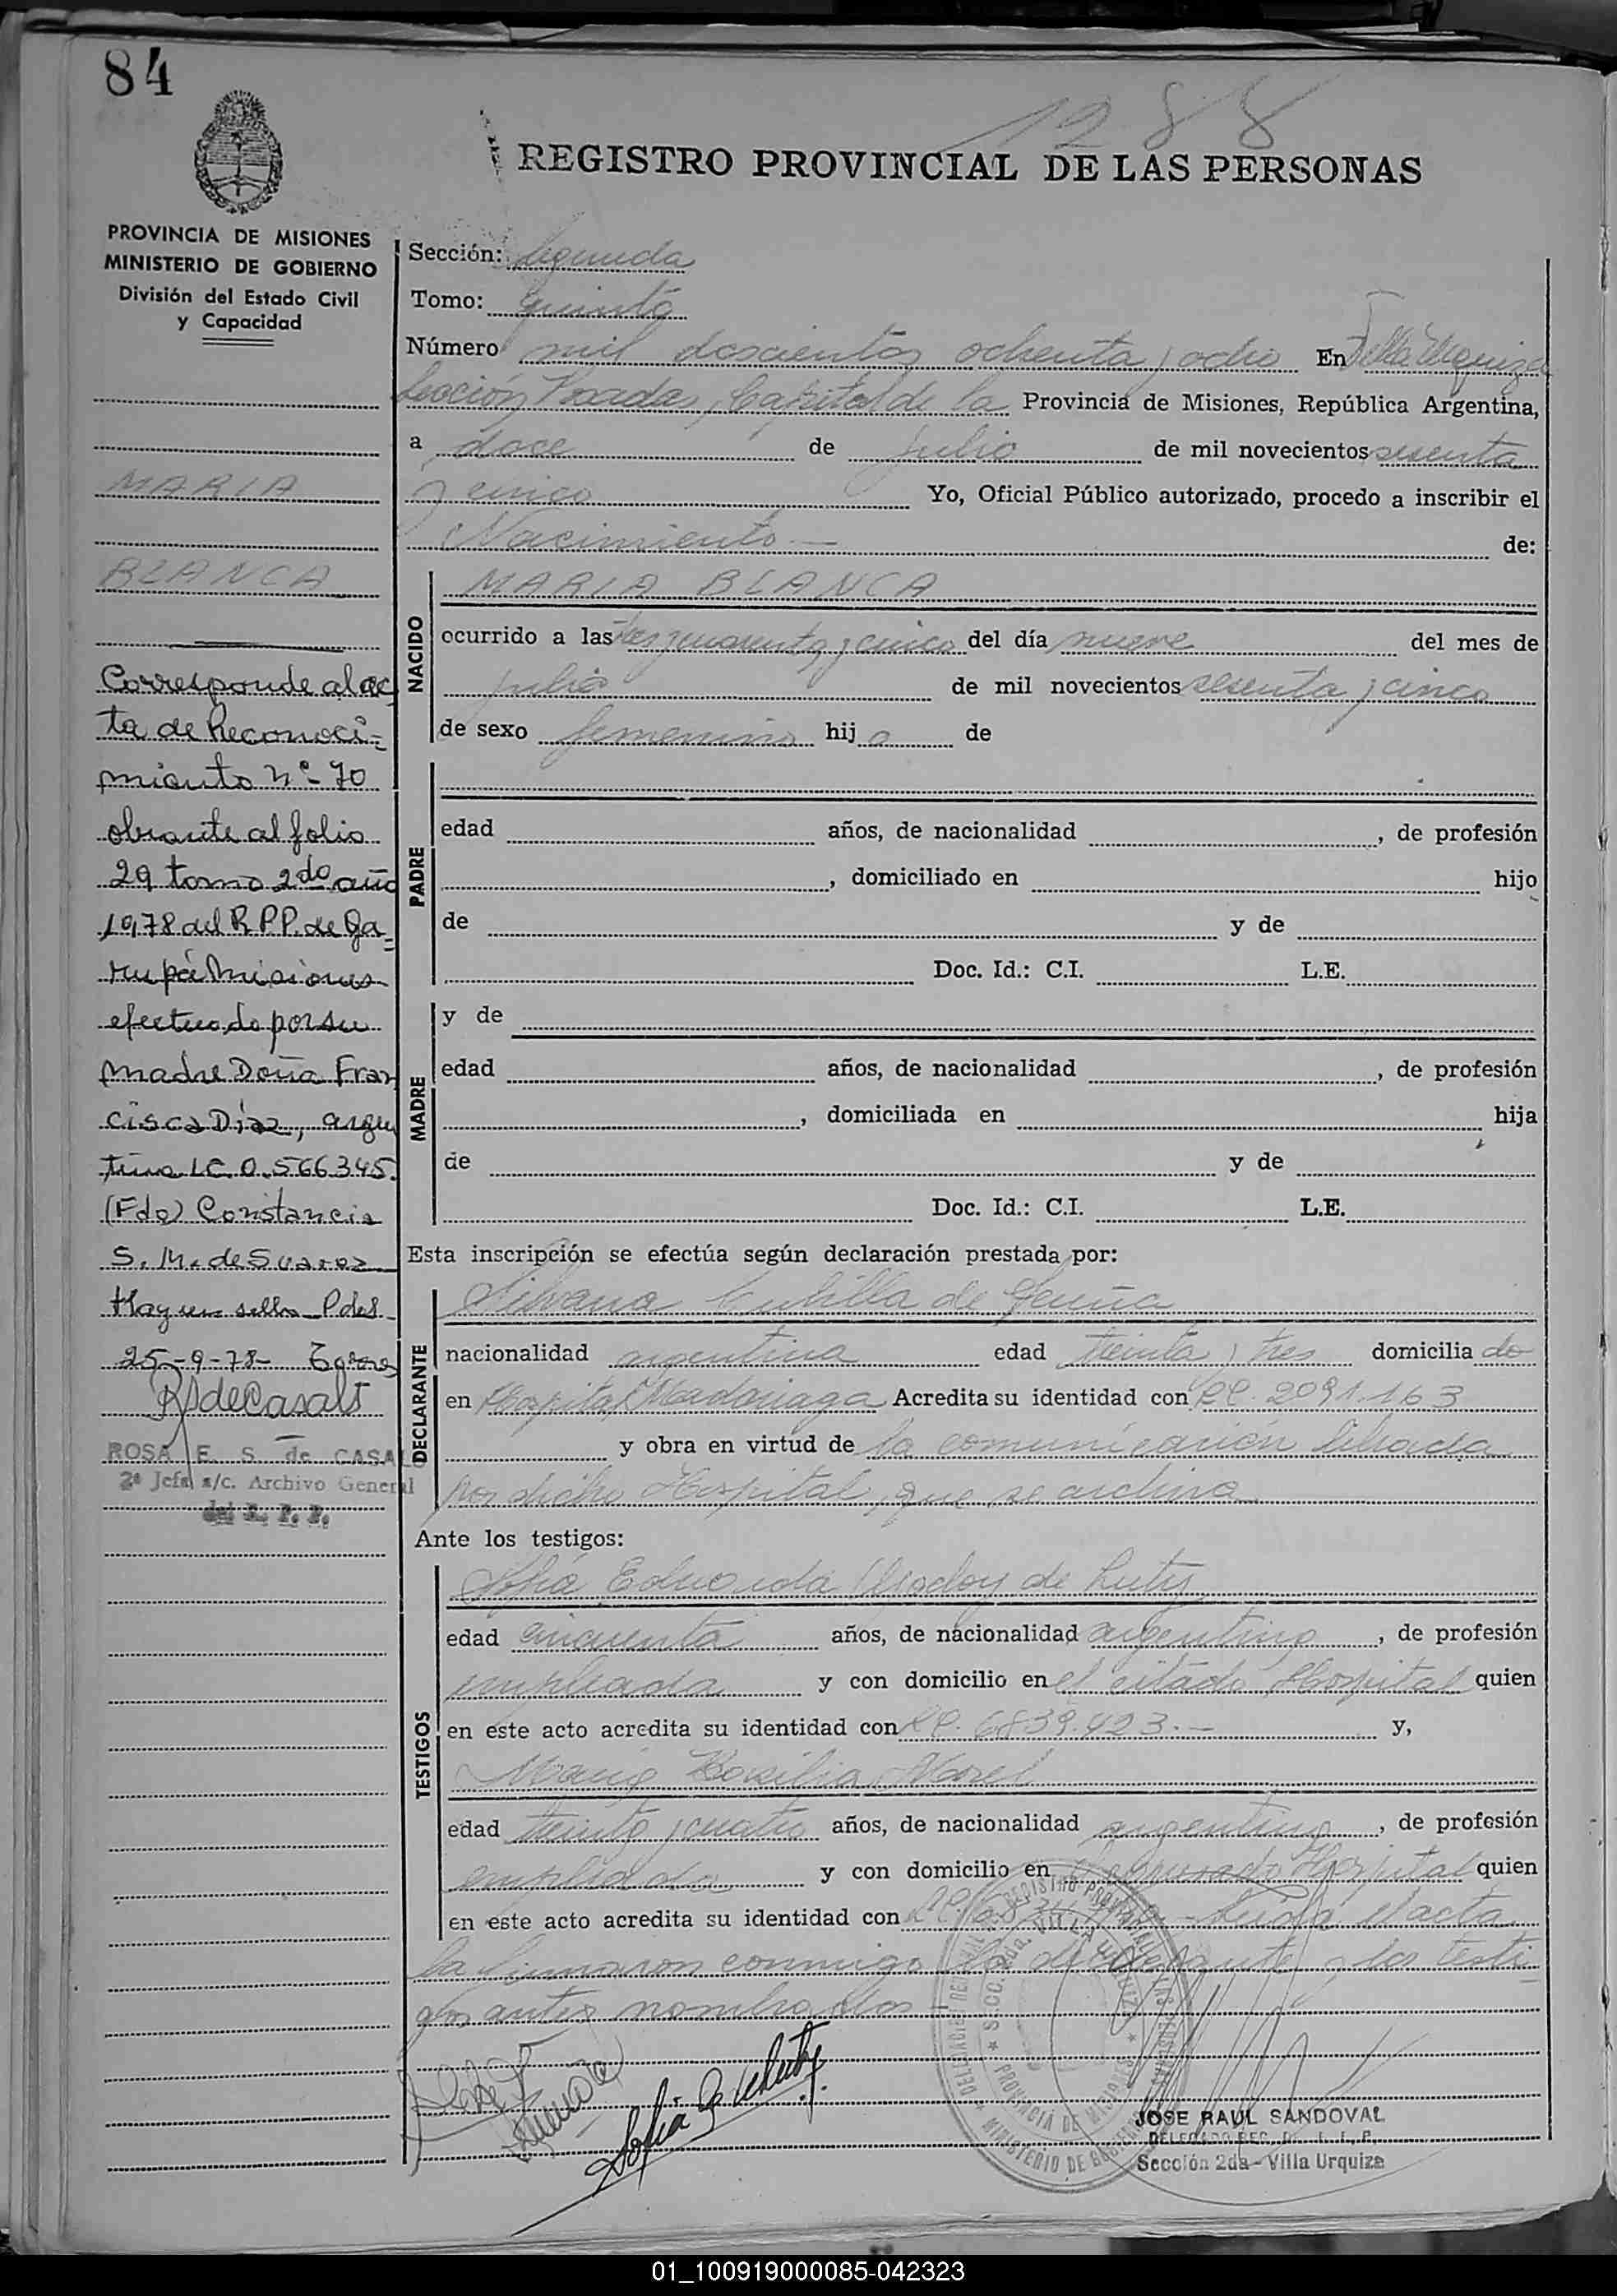 84
1288
REGISTRO PROVINCIAL DE LAS PERSONAS
PROVINCIA DE MISIONES
MINISTERIO DE GOBIERNO
División del Estado Civil
y Capacidad
MARIA
BLANCA
Corresponde al ac
ta de Reconoci=
miento nº 70
obrante al folio
29 tomo 2do año
1978 del R.P.P. de Ga=
rupá Misiones
efectuado por su
madre Doña Fran
cisca Diaz, argen
tina LC 0.566345.
(Fdo) Constancia
S. M. de Suarez
Hay un sello Pdas
25-9-78-
RSdeCasals
ROSA E. S. de CASAL
2ª Jefa a/c. Archivo General
del R. P. P.
Sección: Segunda
Tomo: Quinto
Número mil doscientos ochenta y ocho En Villa Urquiza
Sección Posadas, Capital de la Provincia de Misiones, República Argentina,
a doce de julio de mil novecientos sesenta
y cinco Yo, Oficial Público autorizado, procedo a inscribir el
Nacimiento de:
NACIDO
MARIA BLANCA
ocurrido a las tres y cuarenta y cinco del día nueve del mes de
julio de mil novecientos sesenta y cinco
de sexo femenino hija de
PADRE
edad años, de nacionalidad , de profesión
, domiciliado en hijo
de y de
Doc. Id.: C.I. L.E.
MADRE
y de
edad años, de nacionalidad , de profesión
, domiciliada en hija
de y de
Doc. Id.: C.I. L.E.
Esta inscripción se efectúa según declaración prestada por:
DECLARANTE
Silvana Cubilla de
nacionalidad argentina edad treinta y tres domicilia do
en Hospital Madariaga Acredita su identidad con LC. 2091.163
y obra en virtud de la comunicación librada
por dicho Hospital, que se archiva
Ante los testigos:
TESTIGOS
Sofía Eduarda Godoy de Lutz
edad cincuenta años, de nacionalidad argentina, de profesión
empleada y con domicilio en el citado Hospital quien
en este acto acredita su identidad con LC. 6839.423.- y,
María Basilia Morel
edad treinta y cuatro años, de nacionalidad argentina, de profesión
empleada y con domicilio en Hospital quien
en este acto acredita su identidad con Leída el acta
la firmaron conmigo la declarante y los testi
gos antes nombrados
REGISTRO PROVINCIAL DE LAS PERSONAS
SECC. 2da. VILLA URQUIZA
PROVINCIA DE MISIONES
MINISTERIO DE GOBIERNO
Sofía G de Lutz
JOSE RAUL SANDOVAL
Sección 2da - Villa Urquiza
01_100919000085-042323